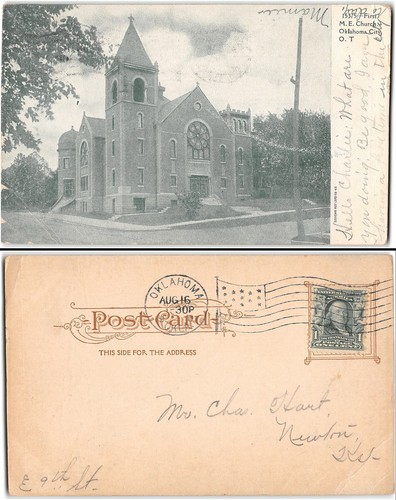 15375 First
M. E. Church
Oklahoma City
O. T
Mamie
Hello Charlie. What are
you doing. Be good, I am
in the
OKLAHOMA
AUG 16
30P
Post Card
THIS SIDE FOR THE ADDRESS
1
Mr. Chas. Hart.
Newton,
Ks.
E 9th St.